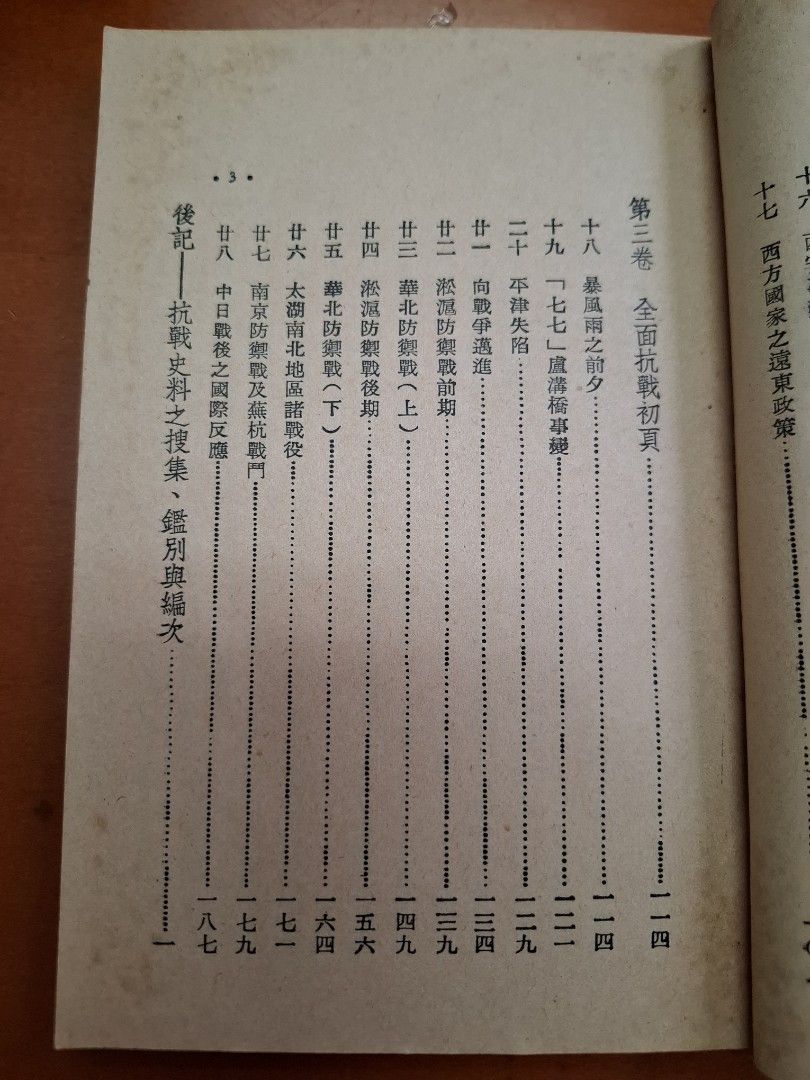 十七　西方國家之遠東政策
第三卷　全面抗戰初頁……一一四
十八　暴風雨之前夕……一一四
十九　「七七」盧溝橋事變……一二一
二十　平津失陷……一二九
廿一　向戰爭邁進……一三四
廿二　淞滬防禦戰前期……一三九
廿三　華北防禦戰（上）……一四九
廿四　淞滬防禦戰後期……一五六
廿五　華北防禦戰（下）……一六四
廿六　太湖南北地區諸戰役……一七一
廿七　南京防禦戰及蕪杭戰鬥……一七九
廿八　中日戰後之國際反應……一八七
後記——抗戰史料之搜集、鑑別與編次……一
•3•